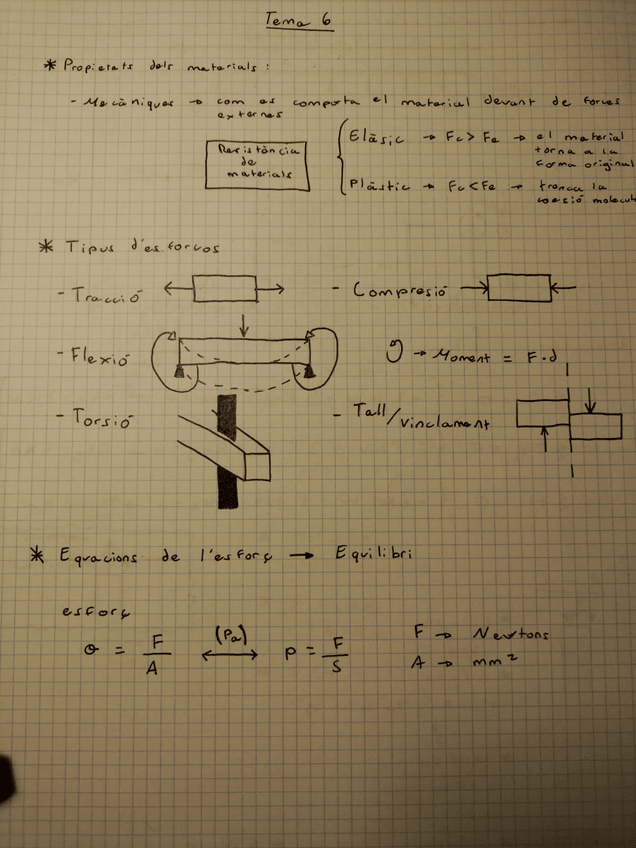 Tema 6
* Propietats dels materials :
- Mecàniques → com es comporta el material devant de forces
externes
Resistència
de
materials
Elàsic → Fc > Fe → el material
torna a la
forma original
Plàstic → Fc < Fe → trenca la
coesió molecul
* Tipus d'esforços
- Tracció
- Compresió
- Flexió
→ Moment = F·d
- Torsió
- Tall/vinclament
* Equacions de l'esforç → Equilibri
esforç
σ = F/A ↔ (Pa) p = F/S
F → Newtons
A → mm²